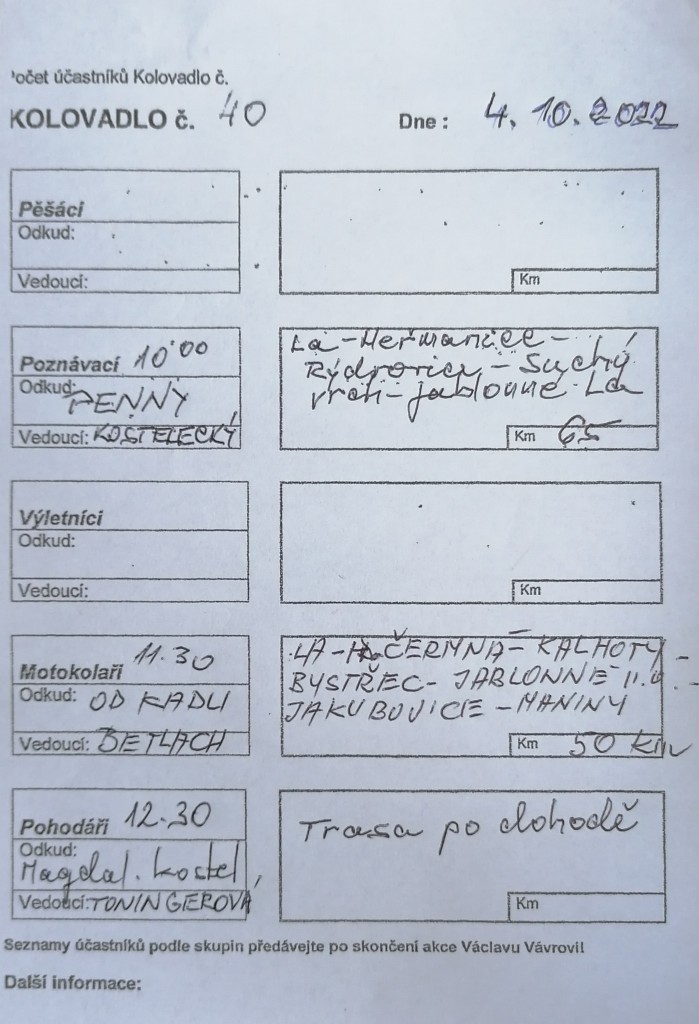 očet účastníků Kolovadlo č.
KOLOVADLO č. 40 Dne : 4. 10. 2022
Pěšáci
Odkud:
Vedoucí:
Km
Poznávací 10⁰⁰
Odkud: PENNY
Vedoucí: KOSTELECKÝ
La - Heřmanice -
- Suchý
vrch - Jablonné - La
Km 65
Výletníci
Odkud:
Vedoucí:
Km
Motokolaři 11.30
Odkud: OD KADLI
Vedoucí: BETLACH
LA - ČERMNÁ - KALHOTY -
BYSTŘEC - JABLONNÉ
JAKUBOVICIE - MANINY
Km 50 km
Pohodáři 12.30
Odkud:
Magdal. kostel
Vedoucí: TONINGEROVÁ
Trasa po dohodě
Km
Seznamy účastníků podle skupin předávejte po skončení akce Václavu Vávrovi!
Další informace: